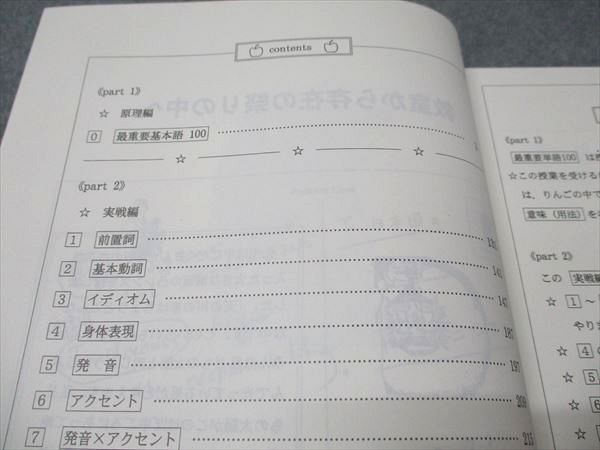 contents
《part 1》
☆ 原理編
0 最重要基本語 100
《part 2》
☆ 実戦編
1 前置詞
2 基本動詞 141
3 イディオム 147
4 身体表現 187
5 発 音 197
6 アクセント 209
7 発音×アクセント 215
《part 1》
最重要単語100 は
☆この授業を受ける
は、りんごの中で
意味（用法）を
《part 2》
この 実戦編
☆ 1 ～
やりま
☆ 4 の
☆ 5
☆ 6
☆